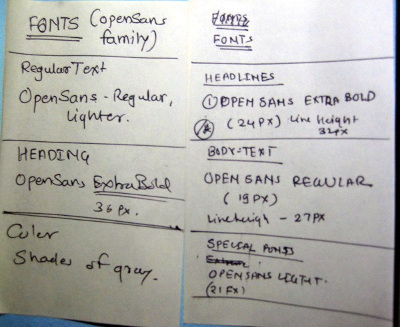 FONTS (openSans
family)
Regular Text
OpenSans - Regular,
Lighter.
HEADING
OpenSans ExtraBold
36 px.
Color
Shades of gray.
FONTS
HEADLINES
① OPEN SANS EXTRA BOLD
(24PX) Line Height
32px
BODY-TEXT
OPEN SANS REGULAR
(19PX)
Lineheigh - 27PX
SPECIAL FONTS
OPENSANS LIGHT.
(21PX)